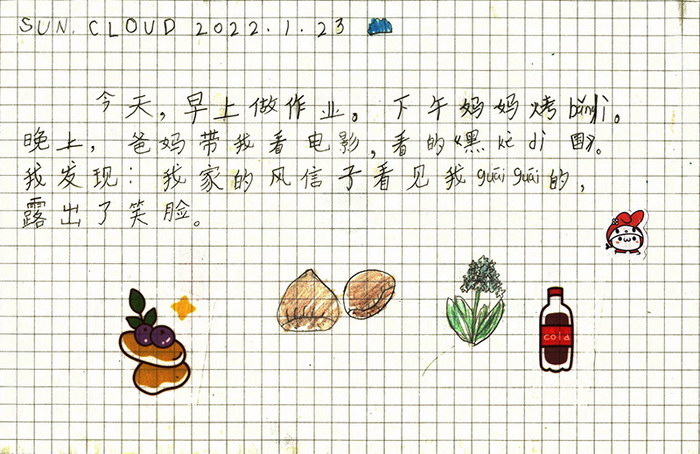 SUN. CLOUD 2022.1.23
今天,早上做作业。下午妈妈烤bǎnlì。
晚上,爸妈带我看电影,看的《黑kè dì 国》。
我发现:我家的风信子看见我guāi guāi的,
露出了笑脸。
cola